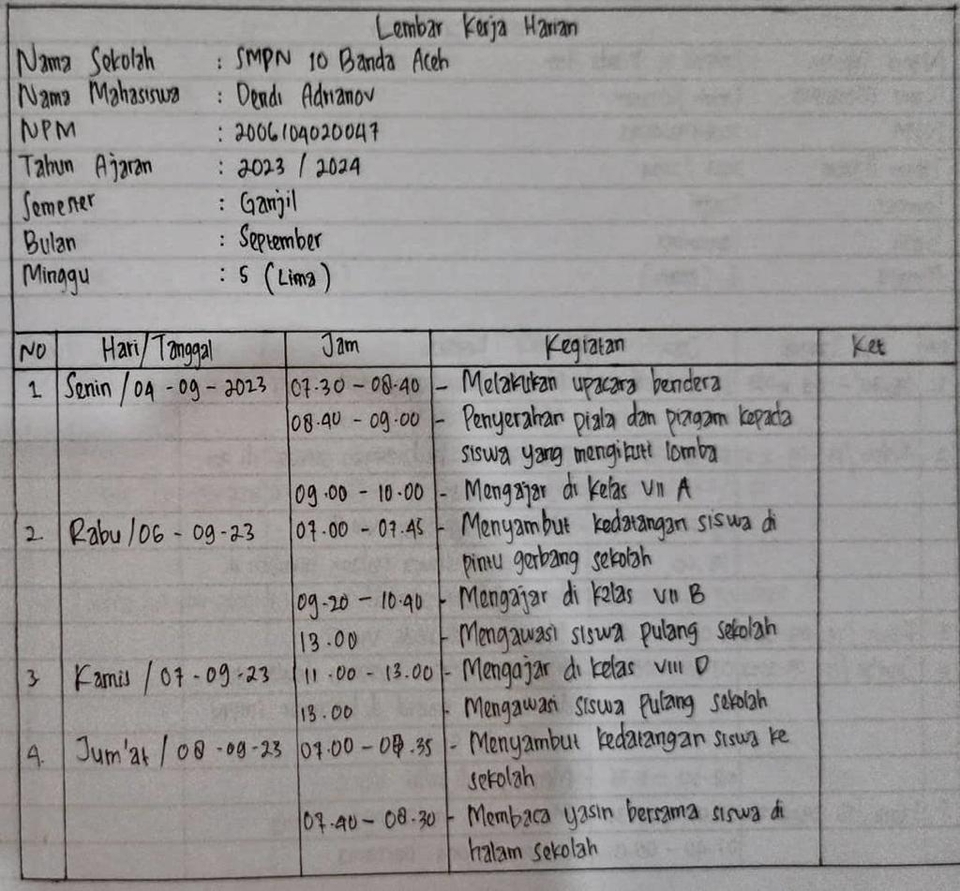 Lembar Kerja Harian
Nama Sekolah : SMPN 10 Banda Aceh
Nama Mahasiswa : Dendi Adrianov
NPM : 2006104020047
Tahun Ajaran : 2023 / 2024
Semester : Ganjil
Bulan : September
Minggu : 5 (Lima)
NO Hari/Tanggal Jam Kegiatan Ket
1 Senin / 04 - 09 - 2023 07.30 - 08.40 - Melakukan upacara bendera
08.40 - 09.00 - Penyerahan piala dan piagam kepada
siswa yang mengikuti lomba
09.00 - 10.00 - Mengajar di kelas VII A
2. Rabu / 06 - 09 - 23 07.00 - 07.45 - Menyambut kedatangan siswa di
pintu gerbang sekolah
09.20 - 10.40 - Mengajar di kelas VII B
13.00 - Mengawasi siswa pulang sekolah
3 Kamis / 07 - 09 - 23 11.00 - 13.00 - Mengajar di kelas VIII D
13.00 - Mengawasi siswa pulang sekolah
4. Jum'at / 08 - 09 - 23 07.00 - 07.35 - Menyambut kedatangan siswa ke
sekolah
07.40 - 08.30 - Membaca yasin bersama siswa di
halam sekolah